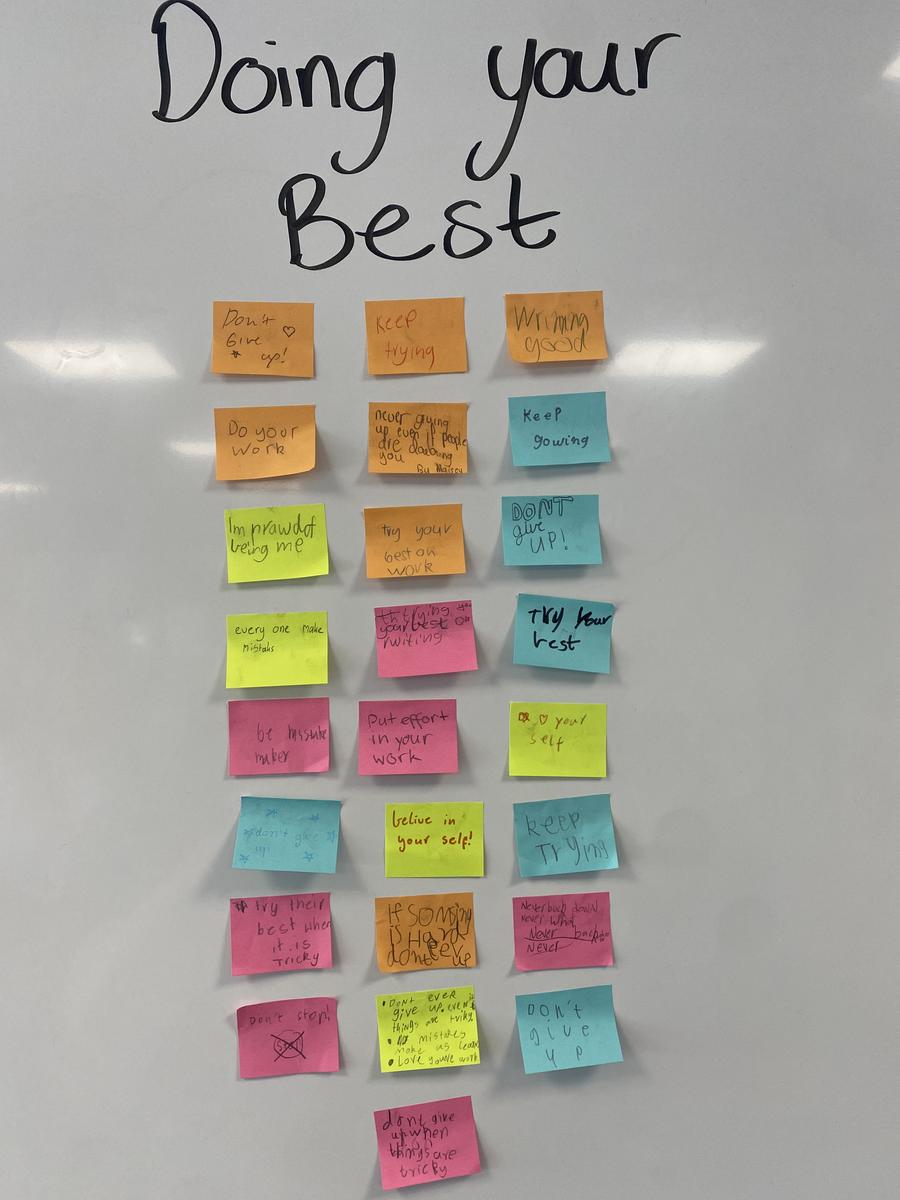 Doing your
Best
Don't
Give
up!
Keep
trying
Writing
good
Do your
work
never giving
up even if people
are doubting
you
By Maisey
Keep
gowing
Im prawdof
being me
try your
best on
work
DONT
give
UP!
every one make
mistaks
trying
your best on
rwiting
Try your
best
be mistake
maker
Put effort
in your
work
your
self
don't give
up
belive in
your self!
keep
Trying
try their
best when
it is
Tricky
if
is Hard
dont
Never back down
never what
Never back
Never
Don't stop!
• Dont ever
give up even if
things are triky
• mistakes
make us learn
• Love your work
Don't
give
up
dont give
up when
things are
tricky